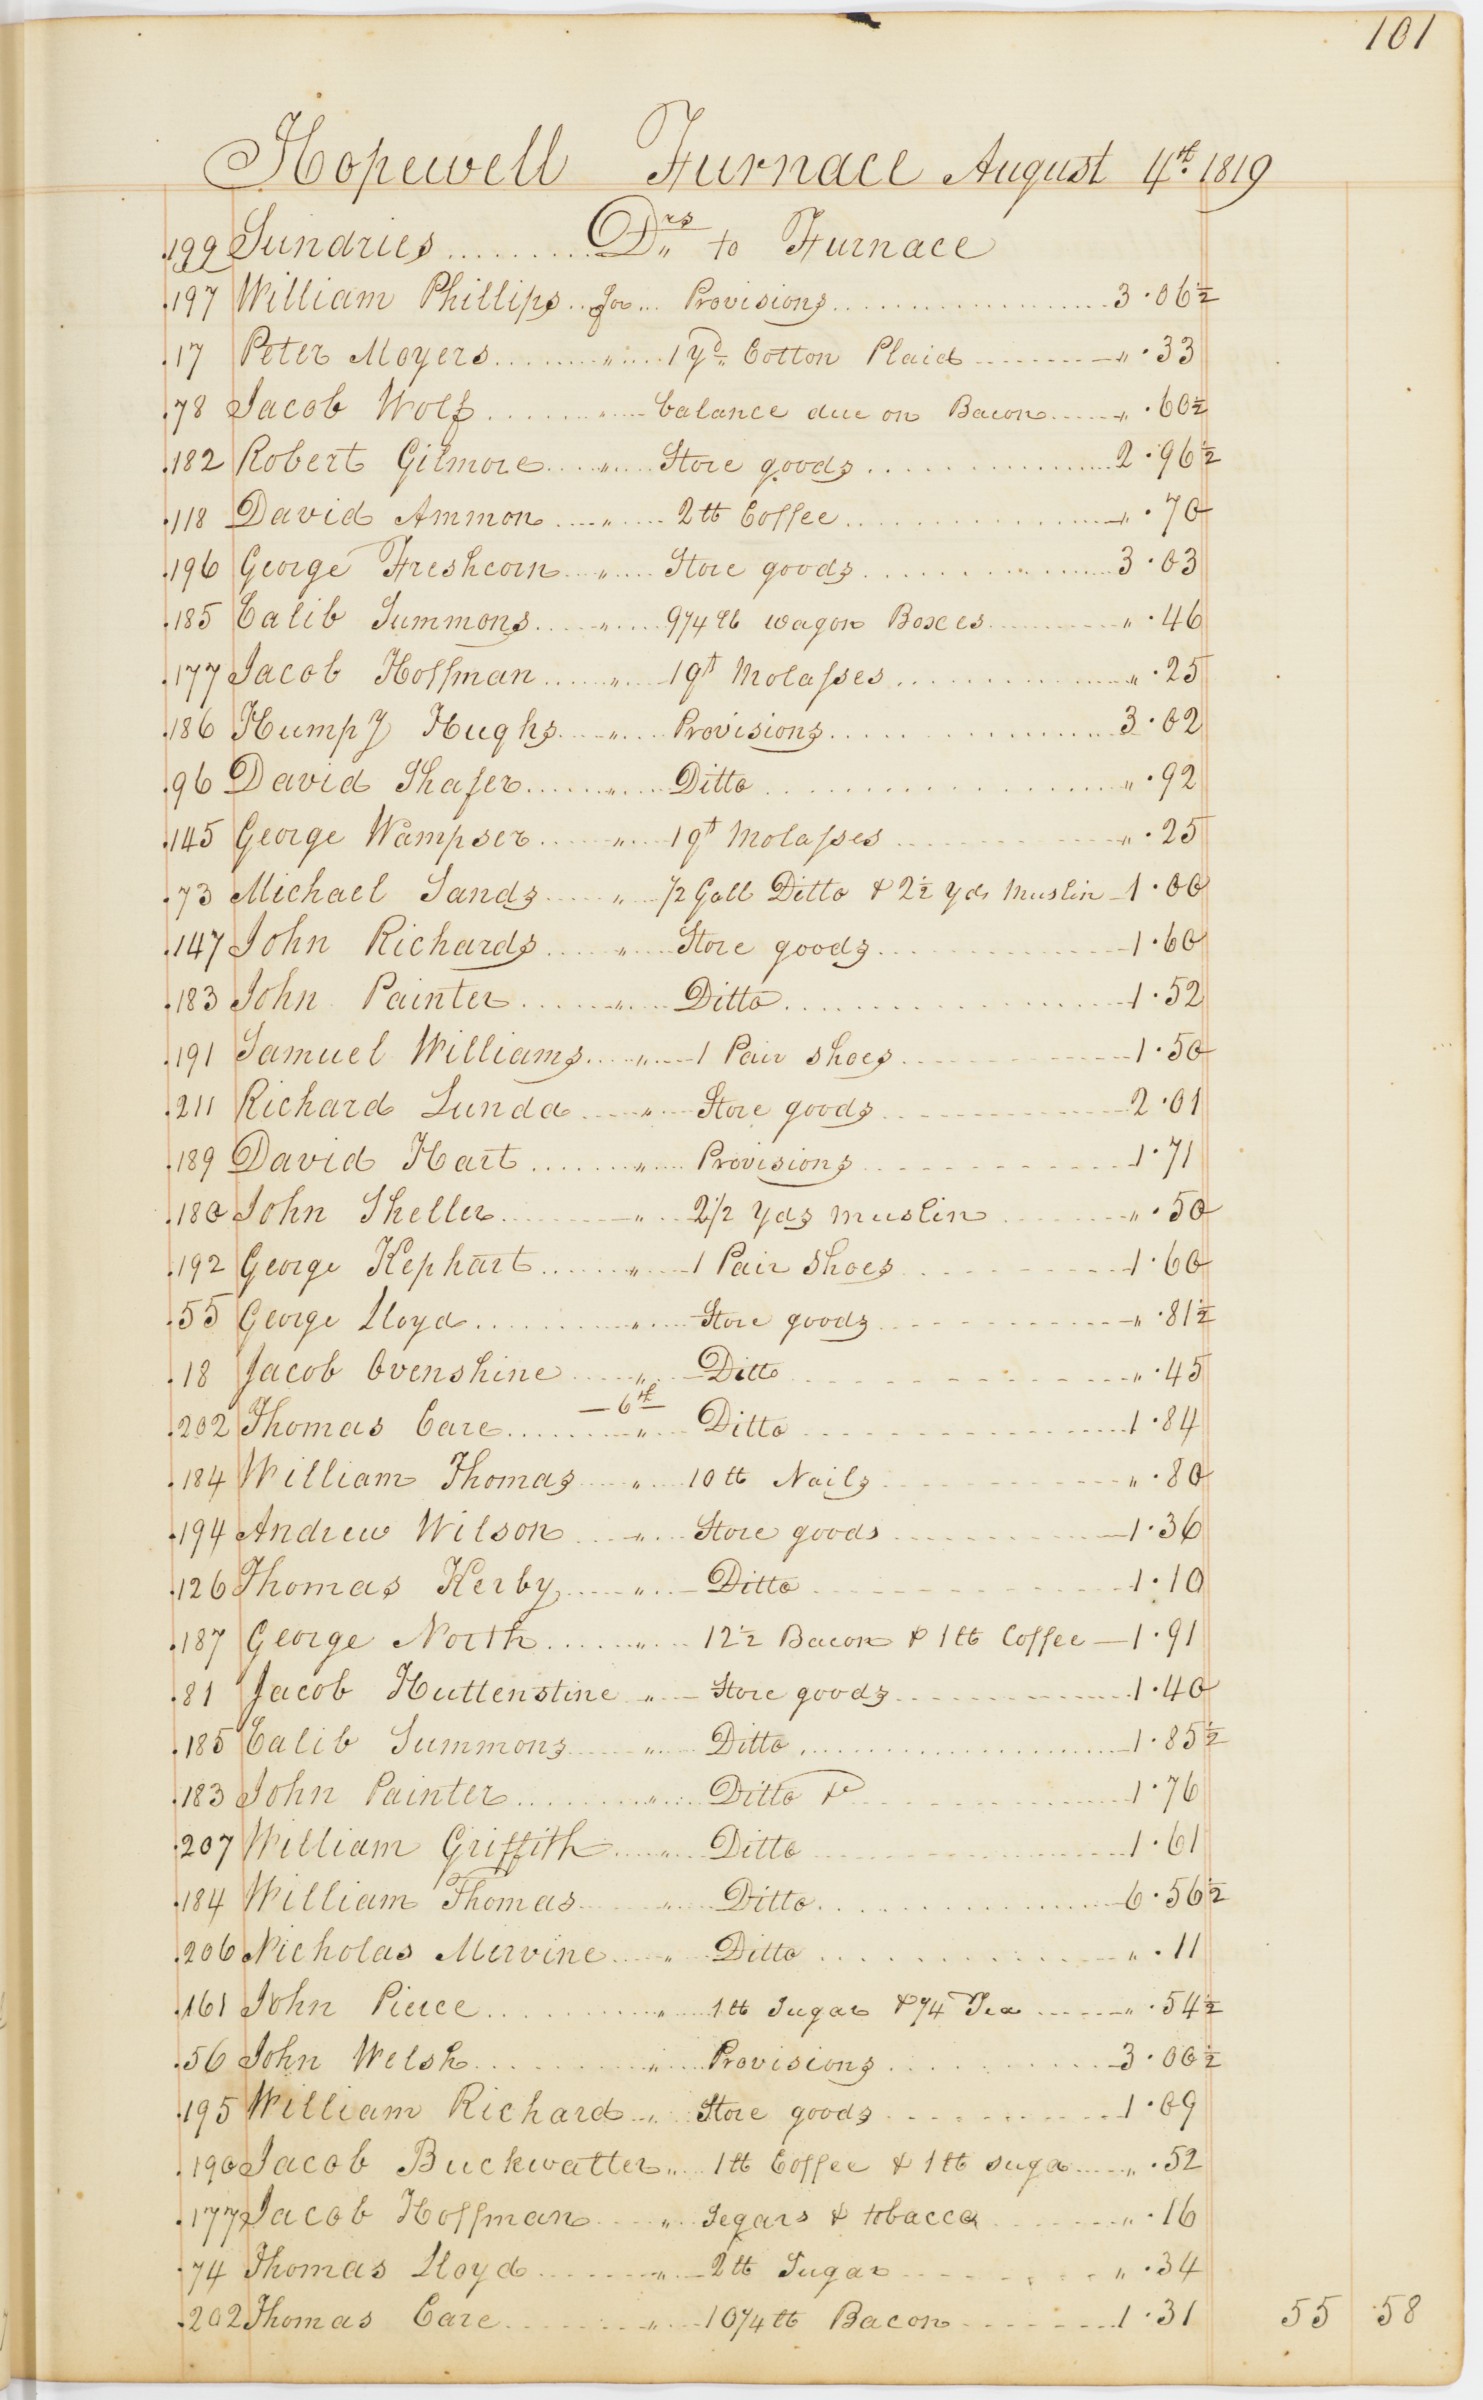 101
Hopewell Furnace August 4th 1819
199 Sundries ......... Drs to Furnace
197 William Phillips .. for ... Provisions ... 3.06½
17 Peter Moyers ... " ... 1 yd Cotton Plaid ... " .33
78 Jacob Wolf ... " ... balance due on Bacon ... " .60½
182 Robert Gilmore ... " ... Store goods ... 2.96½
118 David Ammon ... " ... 2 lb Coffee ... " .70
196 George Freshcorn ... " ... Store goods ... 3.03
185 Calib Summons ... " ... 9¼ lb wagon Boxes ... " .46
177 Jacob Hoffman ... " ... 1 qt Molasses ... " .25
186 Humpy Hughs ... " ... Provisions ... 3.02
96 David Shafer ... " ... Ditto ... " .92
145 George Wampser ... " ... 1 qt Molasses ... " .25
73 Michael Sands ... " ... ½ Gall Ditto & 2½ yds Muslin 1.00
147 John Richards ... " ... Store goods ... 1.60
183 John Painter ... " ... Ditto ... 1.52
191 Samuel Williams ... " ... 1 Pair shoes ... 1.50
211 Richard Lunda ... " ... Store goods ... 2.01
189 David Hart ... " ... Provisions ... 1.71
180 John Sheller ... " ... 2½ yds muslin ... " .50
192 George Kephart ... " ... 1 Pair Shoes ... 1.60
55 George Lloyd ... " ... Store goods ... " .81½
18 Jacob Ovenshine ... " ... Ditto ... " .45
— 6th —
202 Thomas Care ... " ... Ditto ... 1.84
184 William Thomas ... " ... 10 lb Nails ... " .80
194 Andrew Wilson ... " ... Store goods ... 1.36
126 Thomas Kerby ... " ... Ditto ... 1.10
187 George North ... " ... 12½ Bacon & 1 lb Coffee — 1.91
81 Jacob Huttenstine " — Store goods ... 1.40
185 Calib Summons ... " ... Ditto ... 1.85½
183 John Painter ... " ... Ditto & ... 1.76
207 William Griffith ... " ... Ditto ... 1.61
184 William Thomas ... " ... Ditto ... 6.56½
206 Nicholas Mervine ... " ... Ditto ... " .11
161 John Pierce ... " ... 1 lb Sugar & ¼ Tea ... " .54½
56 John Welsh ... " ... Provisions ... 3.00½
195 William Richard .. " ... Store goods ... 1.09
190 Jacob Buckwatter .. " ... 1 lb Coffee & 1 lb suga ... " .52
177 Jacob Hoffman ... " ... Segars & tobacco ... " .16
74 Thomas Lloyd ... " ... 2 lb Sugar ... " .34
202 Thomas Care ... " ... 10¼ lb Bacon ... 1.31 55 58